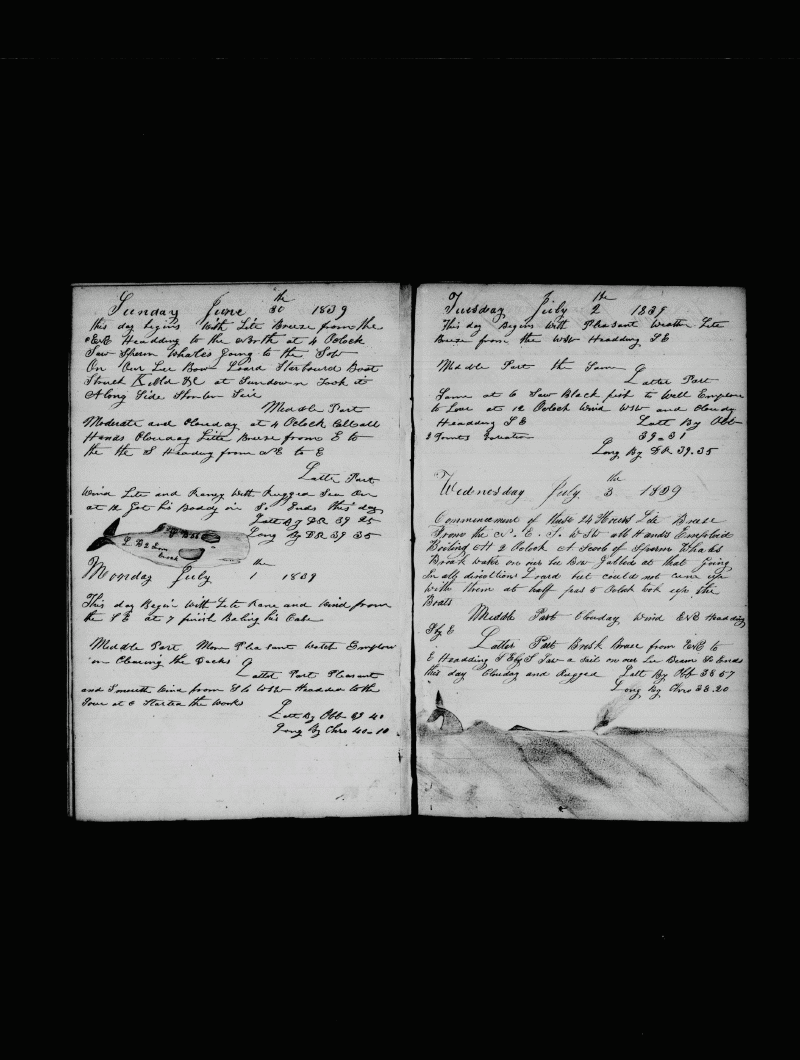 Sunday June 30th 1839
this day begins With Lite Breeze from the
ENE Headding to the at 4 Oclock
Saw Sperm Whales Going to the
On Our Lee Bow Loard Starbourd Boat
Struck Killd at Sundown Took it
Along Side
Middle Part
Moderate and Clouday at 4 Oclock Calld all
Hands Clouday Litte Breeze from E to
the the S Heading from NE to E
Latter Part
Wind Lite and With Rugged Sea On
at 12 Got his Boddy in So Ends this day
Latt By DR 39 25
Long By DR 39 35
L B
Monday July 1th 1839
This day Begin With Lite and Wind from
the SE at 7 finish his Case
Middle Part More Pleasant Watch Employ
on Clearing the Decks
Latter Part Pleasant
and Smooth Wind from S to WSW Headded to the
at 6 Started the Works
Latt By Obb 39 40
Long By Chro 40-10
Tuesday July 2the 1839
This day Begins With Pleasant Weather Lite
Breeze from the WSW Headding SE
Middle Part the Same
Latter Part
Same at 6 Saw Black fish
to at 12 Oclock Wind WSW and Cloudy
Headding SE Latt By Obb
39-31
Long By DR 39.35
Wednesday July 3th 1839
Commencement of these 24 Hours Lite Breeze
From the WSW all Hands Emploid
Boiling At 2 Oclock A Scool of Sperm Whales
Broak Water on our lee Bow at that Going
In all directions Loard but could not come up
With them at half pas 5 Oclock took up the
Boats
Middle Part Clouday Wind ENE Headding
S by E
Latter Part Bresk Brese from ENE to
E Headding S E by S Saw a Sail on our Lee Beam So Ends
this day Clouday and Rugged Latt By Obb 38 57
Long By Chro 38.20